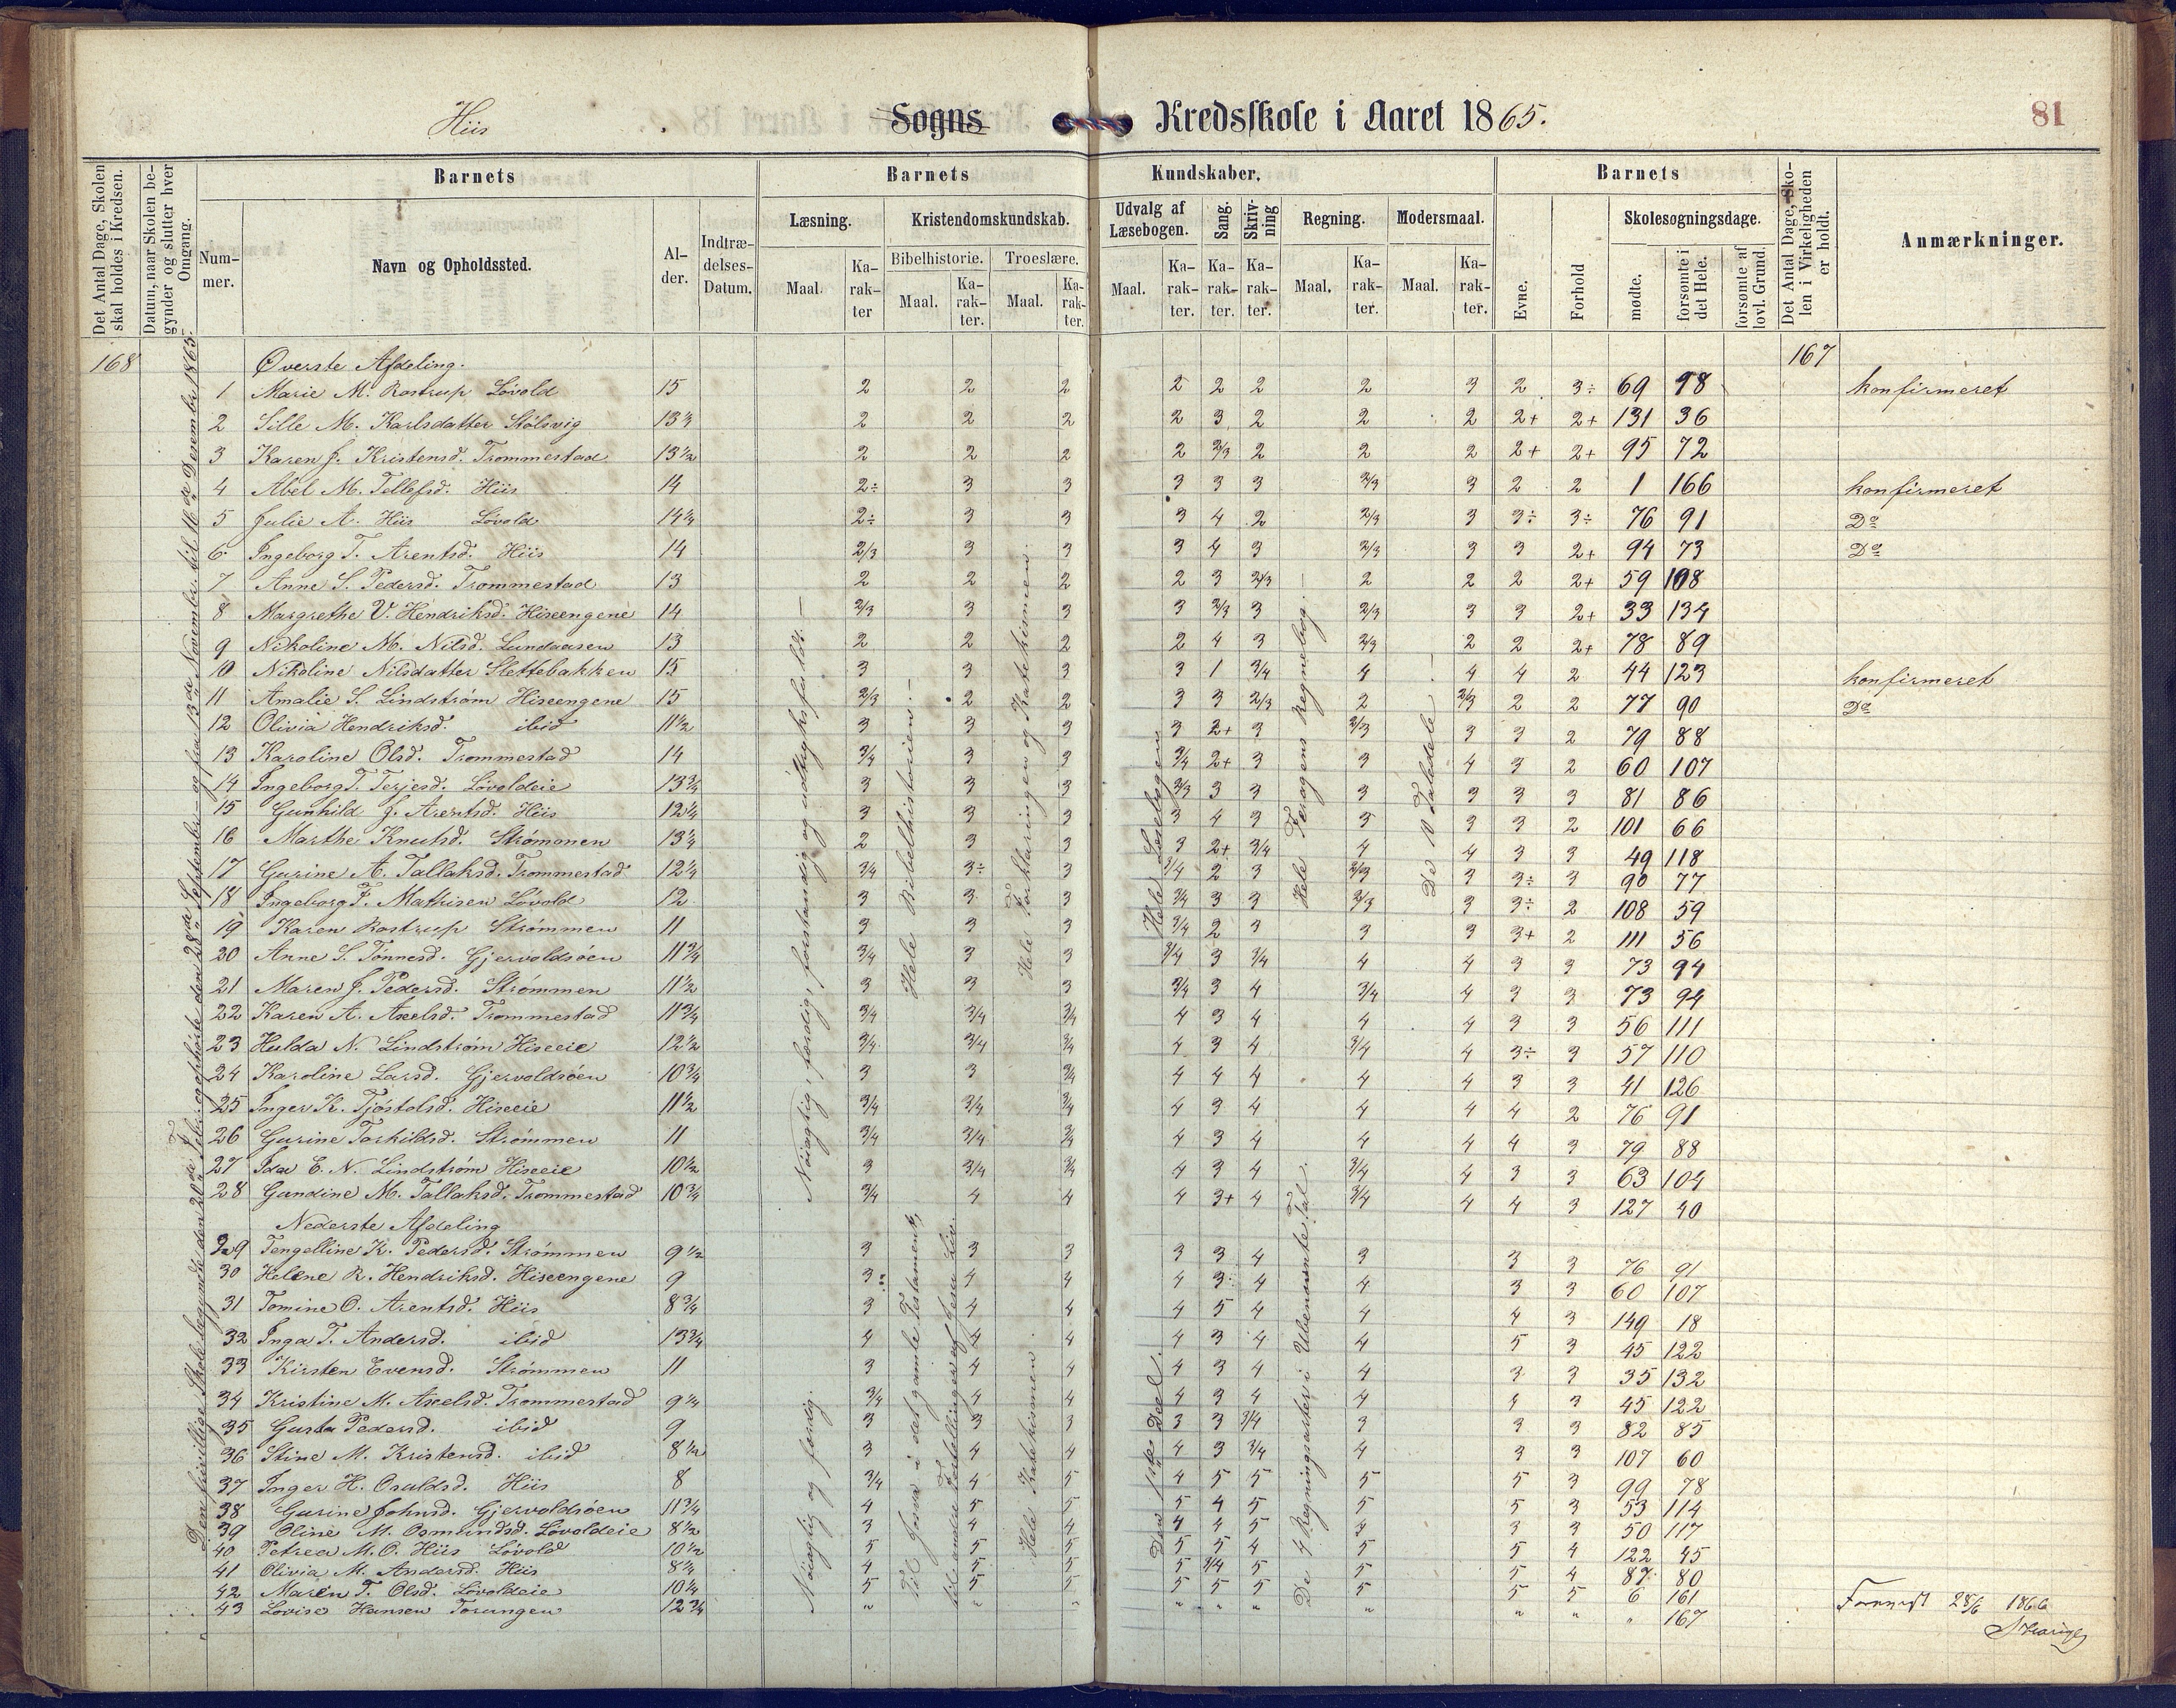 Hiis Sogns Kredsskole i Aaret 1865. 81
Det Antal Dage, Skolen skal holdes i Kredsen.
Datum, naar Skolen begynder og slutter hver Omgang.
Barnets
Nummer.
Navn og Opholdssted.
Alder.
Indtrædelses-Datum.
Barnets Kundskaber.
Læsning. Maal. Karakter
Kristendomskundskab.
Bibelhistorie. Maal. Karakter.
Troeslære. Maal. Karakter.
Udvalg af Læsebogen. Maal. Karakter.
Sang. Karakter.
Skrivning Karakter.
Regning. Maal. Karakter.
Modersmaal. Maal. Karakter.
Barnets
Evne.
Forhold
Skolesøgningsdage.
mødte.
forsømte i det Hele.
forsømte af lovl. Grund.
Det Antal Dage, Skolen i Virkeligheden er holdt.
Anmærkninger.
168 Øverste Afdeling. 167
1 Marie M. Rostrup Løvold 15 2 2 2 2 2 2 2 3 2 3÷ 69 98 konfirmeret
2 Sille M. Karlsdatter Stølsvig 13¼ 2 2 2 2 3 2 2 2 2+ 2+ 131 36
3 Karen J. Kristensd. Trommestad 13½ 2 2 2 2 2/3 2 2 2 2+ 2+ 95 72
4 Abel M. Tellefsd. Hiis 14 2÷ 3 3 3 3 3 2/3 3 2 2 1 166 konfirmeret
5 Julie A. Hiis Løvold 14¼ 2÷ 3 3 3 4 2 2/3 3 3÷ 3÷ 76 91 Do
6 Ingeborg T. Arentsd. Hiis 14 2/3 3 3 3 4 3 2/3 3 3 2+ 94 73 Do
7 Anne S. Pedersd. Trommestad 13 2 2 2 2 3 2/3 2 2 2 2+ 59 108
8 Margrethe V. Hendriksd. Hiseengene 14 2/3 3 3 3 2/3 3 2/3 3 3 2+ 33 134
9 Nikoline M. Nilsd. Lundaasen 13 2 2 2 2 4 3 2/3 2 2 2+ 78 89
10 Nikoline Nilsdatter Slettebakken 15 3 3 3 3 1 3/4 4 4 4 2 44 123 konfirmeret
11 Amalie S. Lindstrøm Hiseengene 15 2/3 2 2 3 3 2/3 2 2/3 2 2 77 90 Do
12 Olivia Hendriksd. ibid 11½ 3 3 3 3 2+ 3 2/3 3 3 2 79 88
13 Karoline Olsd. Trommestad 14 3/4 3 3 3/4 2+ 3 3 4 3 2 60 107
14 Ingeborg T. Terjesd. Løvoldeie 13¾ 3 3 3 2/3 3 3 3 3 3 3 81 86
15 Gunhild J. Arentsd. Hiis 12¼ 3 3 3 3 4 3 3 3 3 2 101 66
16 Marthe Knutsd. Strømmen 13¼ 2 3 3 3 2+ 3/4 4 4 3 3 49 118
17 Gurine A. Tallaksd. Trommestad 12¼ 3/4 3÷ 3 3/4 2 3 2/3 3 3÷ 3 90 77
18 Ingeborg F. Mathisen Løvold 12 3 3 3 3/4 3 3 2/3 3 3÷ 2 108 59
19 Karen Rostrup Strømmen 11 3 3 3 3/4 2 3 3 3 3+ 2 111 56
20 Anne S. Tønnesd. Gjervoldsøen 11¾ 3/4 3 3 3/4 3 3/4 4 4 3 3 73 94
21 Maren J. Pedersd. Strømmen 11½ 3 3 3 3/4 3 4 3/4 4 3 3 73 94
22 Karen A. Axelsd. Trommestad 11¾ 3/4 3/4 3/4 4 3 4 4 4 3 3 56 111
23 Hulda N. Lindstrøm Hiseeie 12½ 3/4 3/4 3/4 4 3 4 3/4 4 3÷ 3 57 110
24 Karoline Larsd. Gjervoldsøen 10¾ 3 3 3/4 4 4 4 4 4 3 3 41 126
25 Inger K. Tjøstolsd. Hiseeie 11½ 3/4 3/4 3/4 4 3 4 4 4 4 2 76 91
26 Gurine Torkildsd. Strømmen 11 3/4 3/4 3/4 4 3 4 4 4 4 3 79 88
27 Ida E. N. Lindstrøm Hiseeie 10½ 3 3/4 3/4 4 3 4 3/4 4 3 3 63 104
28 Gundine M. Tallaksd. Trommestad 10¾ 3/4 4 4 4 3+ 4 3/4 4 4 3 127 40
Nederste Afdeling
29 Tengelline K. Pedersd. Strømmen 9½ 3 3 3 3 3 4 3 3 3 76 91
30 Helene R. Hendriksd. Hiseengene 9 3 4 4 4 3 4 4 3 3 60 107
31 Tomine O. Arentsd. Hiis 8¾ 3 4 4 4 5 4 4 4 3 149 18
32 Inga T. Andersd. ibid 13¾ 4 4 4 4 3 4 4 5 3 45 122
33 Kirsten Evensd. Strømmen 11 3 4 4 4 3 4 4 3 3 35 132
34 Kristine M. Axelsd. Trommestad 9¼ 3/4 4 4 4 3 4 4 4 3 45 122
35 Gusta Pedersd. ibid 9 3 3 3 3 3 3/4 3 3 3 82 85
36 Stine M. Kristensd. ibid 8½ 3 4 4 4 3 3/4 4 3 3 107 60
37 Inger H. Osuldsd. Hiis 8 3/4 4 5 4 5 5 5 5 3 99 78
38 Gurine Johnsd. Gjervoldsøen 11¾ 4 5 5 5 4 5 5 5 3 53 114
39 Oline M. Osmundsd. Løvoldeie 8½ 3 4 4 4 4 5 4 3 3 50 117
40 Petrea M. O. Hiis Løvold 10½ 5 5 5 5 5 4 5 5 4 122 45
41 Olivia M. Andersd. Hiis 8¼ 4 5 5 5 3/4 5 5 5 4 87 80
42 Maren T. Olsd. Løvoldeie 10¼ 5 5 5 5 5 5 5 5 5 6 161
43 Lovise Hansen Torungen 12¾ " " " " " " " " " " 167
Den frivillige Skole begyndte den 20de Febr. og ophørte den 28de Septembr. og fra 13de Novembr. til 16de Desembr. 1865.
Nøiagtig, færdig, forstandig og udtryksfuldt.
Hele Bibelhistorien.
Hele Forklaringen og Katekismen.
Hele Læsebogen
Hele Feragens Regnebog.
De 10 Taledele.
Nøiagtig og færdig.
Til Josva i det gamle Testamente,
til andre Fortællinger af Jesu Liv.
Hele Katekismen.
Den 1ste Deel.
De 4 Regningsarter i Ubenævnte Tal.
28/6 1866